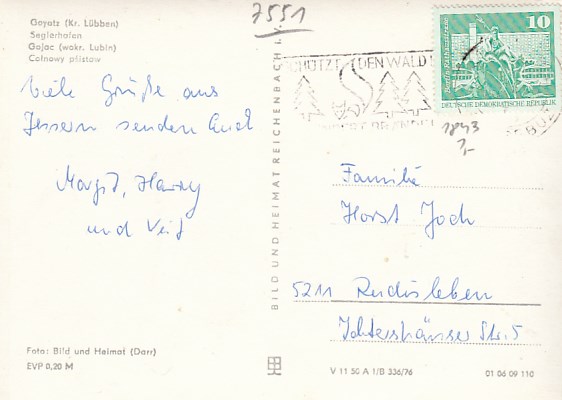 7551
Goyatz (Kr. Lübben)
Seglerhafen
Gojac (wokr. Lubin)
Colnowy pśistaw
Viele Grüße aus
Jessern senden Euch
Margit, Harry
und Veit
BILD UND HEIMAT REICHENBACH I. V.
SCHÜTZT DEN WALD
10
DEUTSCHE DEMOKRATISCHE REPUBLIK
1843
1,-
Familie
Horst Joch
5211 Rudisleben
Ichtershäuser Str. 5
Foto: Bild und Heimat (Darr)
EVP 0,20 M
V 11 50 A 1/B 336/76
01 06 09 110